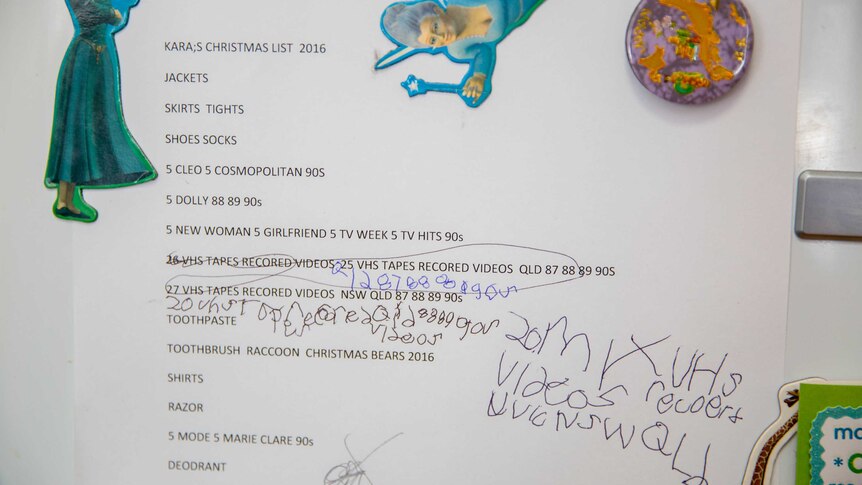 KARA;S CHRISTMAS LIST 2016
JACKETS
SKIRTS TIGHTS
SHOES SOCKS
5 CLEO 5 COSMOPOLITAN 90S
5 DOLLY 88 89 90s
5 NEW WOMAN 5 GIRLFRIEND 5 TV WEEK 5 TV HITS 90s
26 VHS TAPES RECORED VIDEOS 25 VHS TAPES RECORED VIDEOS QLD 87 88 89 90S
27 VHS TAPES RECORED VIDEOS NSW QLD 87 88 89 90s
20 vhs
videos
TOOTHPASTE
TOOTHBRUSH RACCOON CHRISTMAS BEARS 2016
20 MIX VHS
videos
NSW QLd
SHIRTS
RAZOR
5 MODE 5 MARIE CLARE 90s
DEODRANT